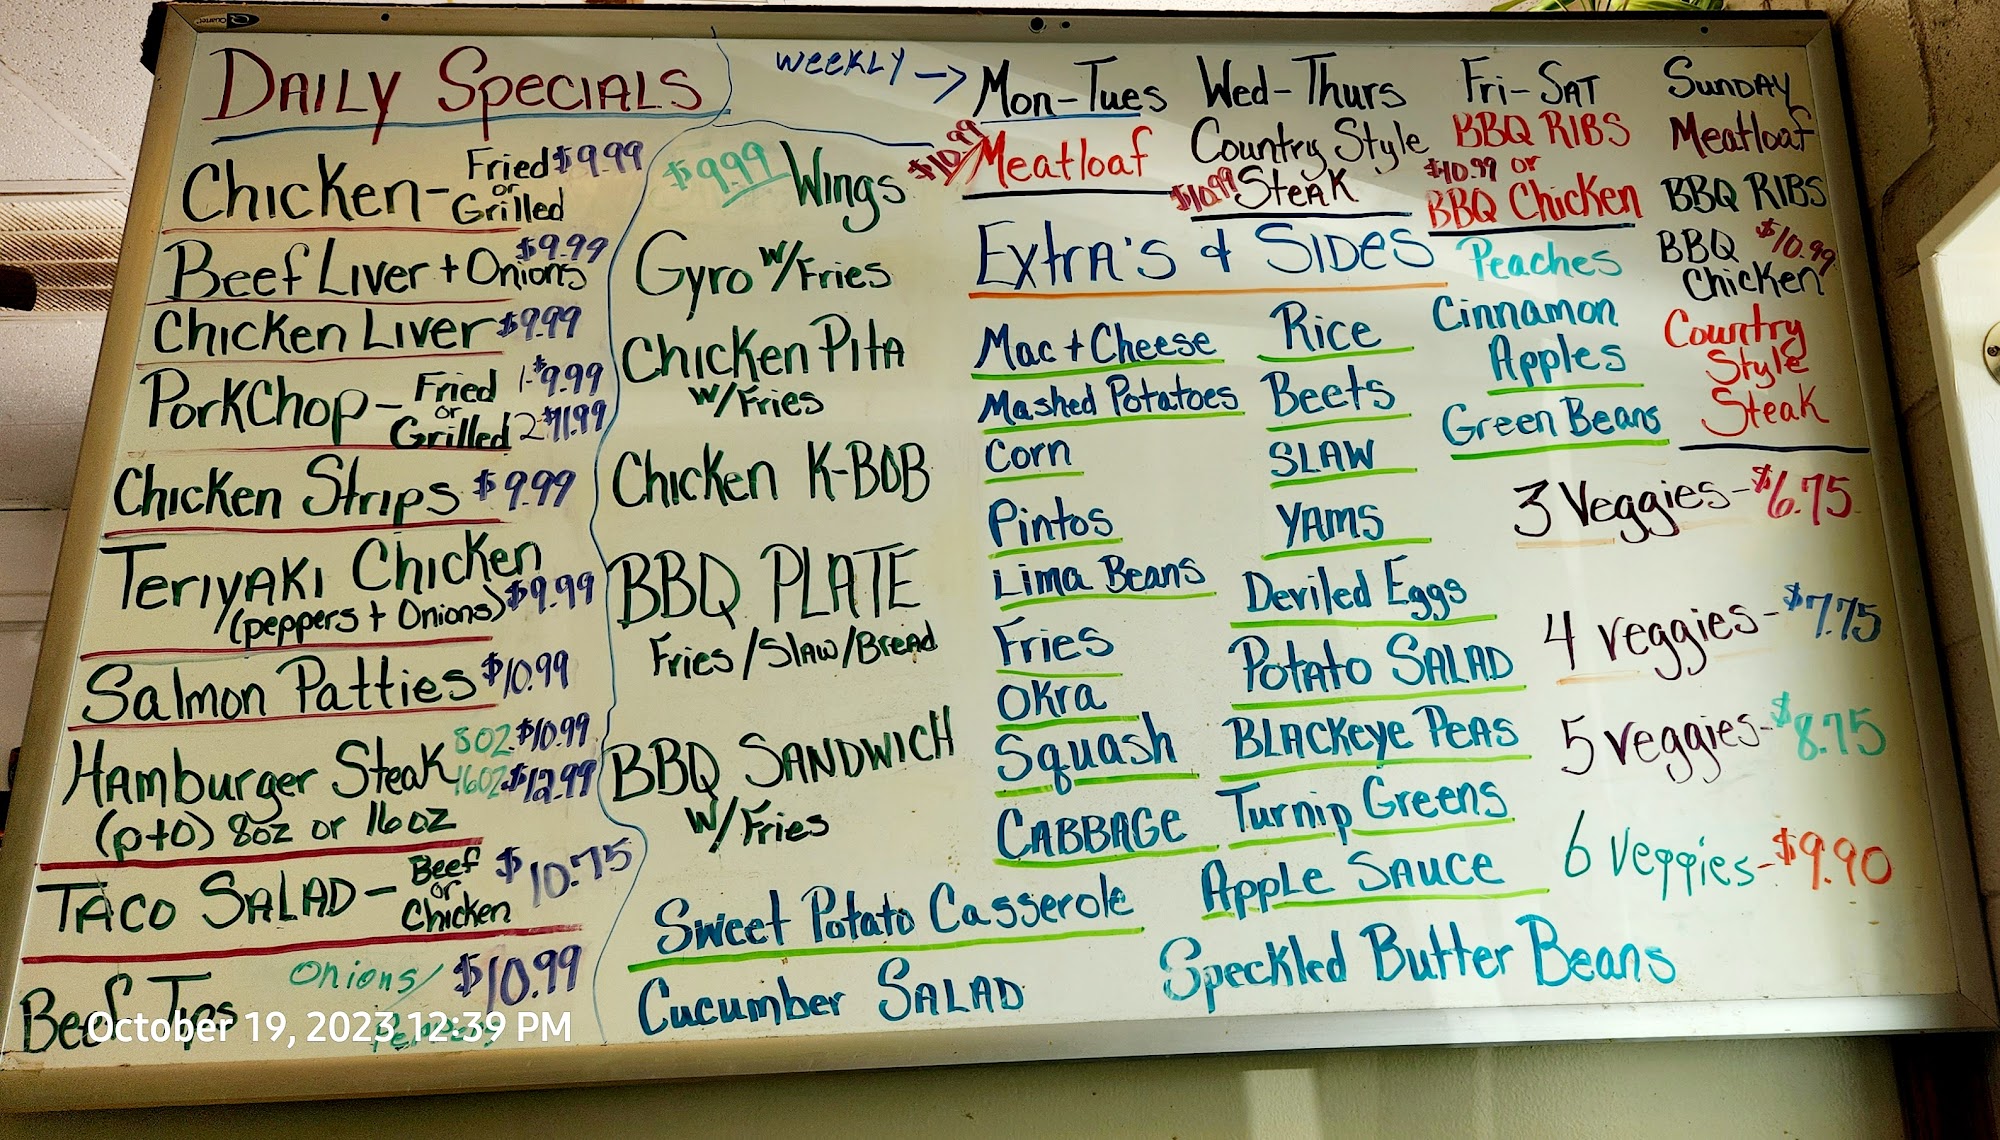 DAILY SPECIALS
Chicken- Fried $9.99
or
Grilled
Beef Liver + Onions $9.99
Chicken Liver $9.99
PorkChop- Fried 1-$9.99
or
Grilled 2 $11.99
Chicken Strips $9.99
Teriyaki Chicken
(peppers + Onions) $9.99
Salmon Patties $10.99
Hamburger Steak 8OZ. $10.99
16OZ $12.99
(p+o) 8oz or 16oz
Taco Salad- Beef $10.75
or
Chicken
Beef Tips Onions/ $10.99
Peppers
October 19, 2023 12:39 PM
$9.99 Wings
Gyro w/Fries
Chicken Pita
w/Fries
Chicken K-BOB
BBQ PLATE
Fries/Slaw/Bread
BBQ SANDWICH
w/Fries
WEEKLY ->
Mon-Tues
$10.99 Meatloaf
Wed-Thurs
Country Style
$10.99 Steak
Fri-Sat
BBQ RIBS
$10.99 or
BBQ Chicken
Sunday
Meatloaf
BBQ RIBS
BBQ $10.99
Chicken
Country
Style
Steak
Extra's & Sides
Mac + Cheese
Mashed Potatoes
Corn
Pintos
Lima Beans
Fries
Okra
Squash
CABBAGE
Sweet Potato Casserole
Cucumber SALAD
Rice
Beets
SLAW
YAMS
Deviled Eggs
Potato SALAD
Blackeye Peas
Turnip Greens
Apple Sauce
Speckled Butter Beans
Peaches
Cinnamon
Apples
Green Beans
3 Veggies-$6.75
4 veggies-$7.75
5 veggies-$8.75
6 veggies-$9.90